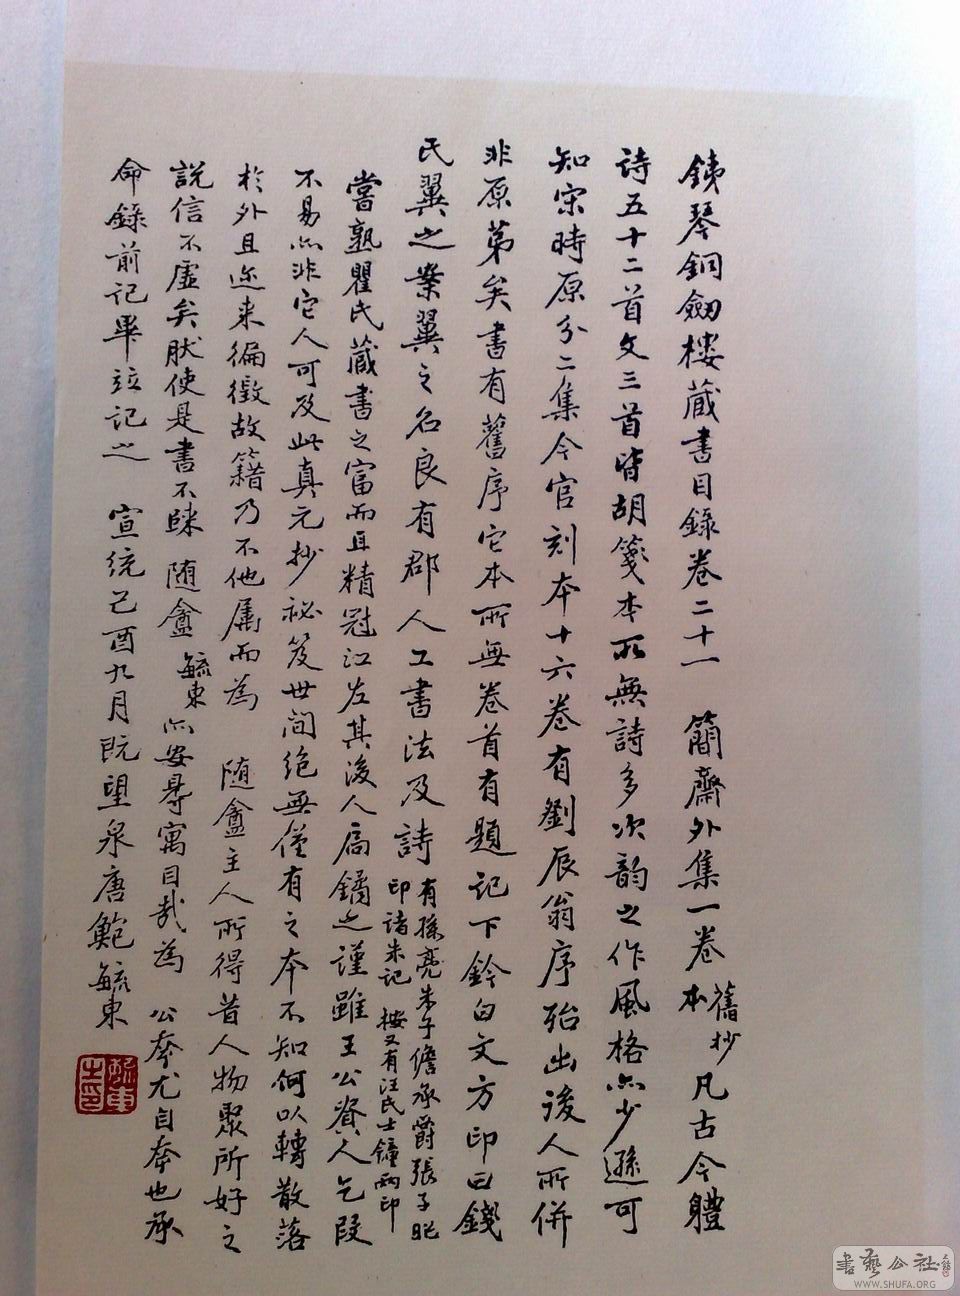 銕琴銅劒樓藏書目錄卷二十一　簡齋外集一卷舊抄本凡古今體
詩五十二首文三首皆胡箋本所無詩多次韵之作風格亦少遜可
知宋時原分二集今官刻本十六卷有劉辰翁序殆出後人所併
非原第矣書有舊序它本所無卷首有題記下鈐白文方印曰錢
氏翼之案翼之名良有郡人工書法及詩有孫亮朱子儋承爵張子昭印諸朱記　按又有汪氏士鐘兩印
嘗熟瞿氏藏書之富而且精冠江左其後人扃鐍之謹雖王公貲人乞叚
不易亦非它人可及此真元抄祕笈世间绝無僅有之本不知何以轉散落
於外且迩来徧徵故籍乃不他属而為　随盦主人所得昔人物聚所好之
説信不虛矣肰使是書不睐随盦毓東亦安㝵寓目哉為　公奔尤自奔也承
命錄前記畢竝記之　宣统己酉九月既望泉唐鮑毓東
毓東之印
書藝公社
WWW.SHUFA.ORG